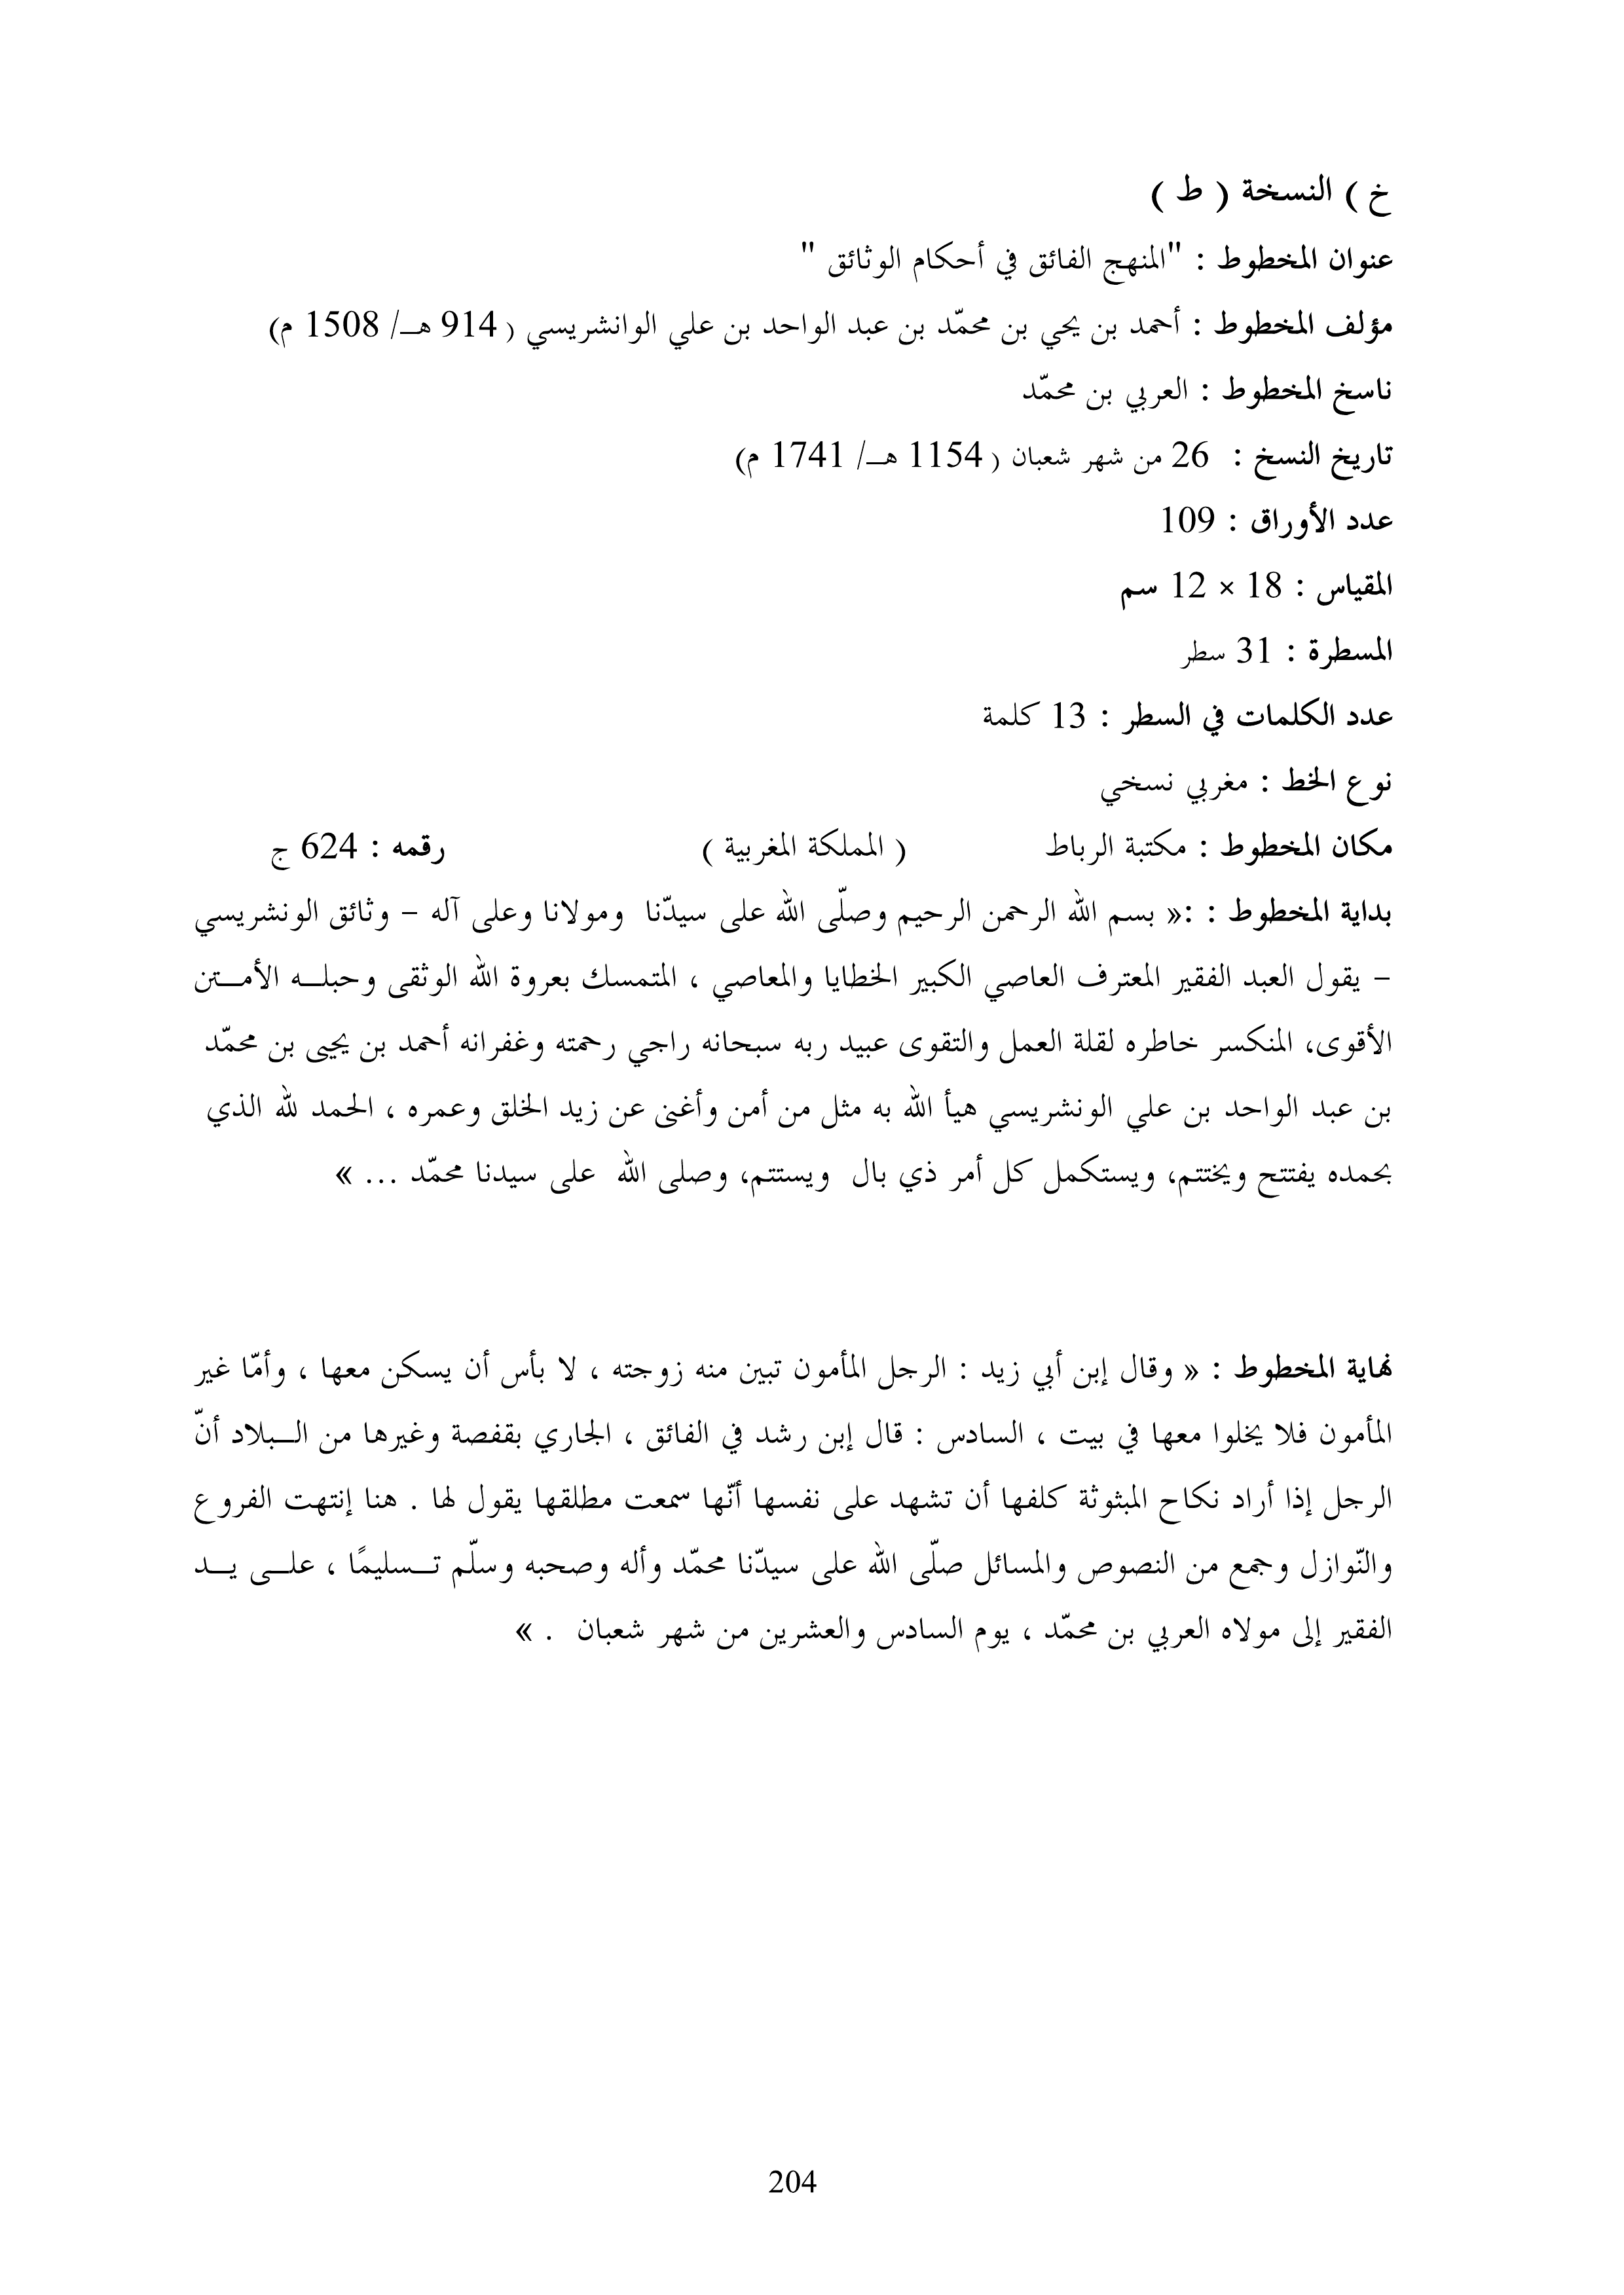 خ ) النسخة ( ط )
عنوان المخطوط : "المنهج الفائق في أحكام الوثائق "
مؤلف المخطوط : أحمد بن يحي بن محمّد بن عبد الواحد بن علي الوانشريسي ( 914 هـ/ 1508 م)
ناسخ المخطوط : العربي بن محمّد
تاريخ النسخ : 26 من شهر شعبان ( 1154 هـ/ 1741 م)
عدد الأوراق : 109
المقياس : 18 × 12 سم
المسطرة : 31 سطر
عدد الكلمات في السطر : 13 كلمة
نوع الخط : مغربي نسخي
مكان المخطوط : مكتبة الرباط ( المملكة المغربية ) رقمه : 624 ج
بداية المخطوط : :« بسم الله الرحمن الرحيم وصلّى الله على سيدّنا ومولانا وعلى آله – وثائق الونشريسي
– يقول العبد الفقير المعترف العاصي الكبير الخطايا والمعاصي ، المتمسك بعروة الله الوثقى وحبلـه الأمـتن
الأقوى، المنكسر خاطره لقلة العمل والتقوى عبيد ربه سبحانه راجي رحمته وغفرانه أحمد بن يحيى بن محمّد
بن عبد الواحد بن علي الونشريسي هيأ الله به مثل من أمن وأغنى عن زيد الخلق وعمره ، الحمد لله الذي
بحمده يفتتح ويختتم، ويستكمل كل أمر ذي بال ويستتم، وصلى الله على سيدنا محمّد ... »
نهاية المخطوط : « وقال إبن أبي زيد : الرجل المأمون تبين منه زوجته ، لا بأس أن يسكن معها ، وأمّا غير
المأمون فلا يخلوا معها في بيت ، السادس : قال إبن رشد في الفائق ، الجاري بقفصة وغيرها من الـبلاد أنّ
الرجل إذا أراد نكاح المبثوثة كلفها أن تشهد على نفسها أنّها سمعت مطلقها يقول لها . هنا إنتهت الفروع
والنّوازل وجمع من النصوص والمسائل صلّى الله على سيدّنا محمّد وأله وصحبه وسلّم تـسليمًا ، علـى يـد
الفقير إلى مولاه العربي بن محمّد ، يوم السادس والعشرين من شهر شعبان . »
204